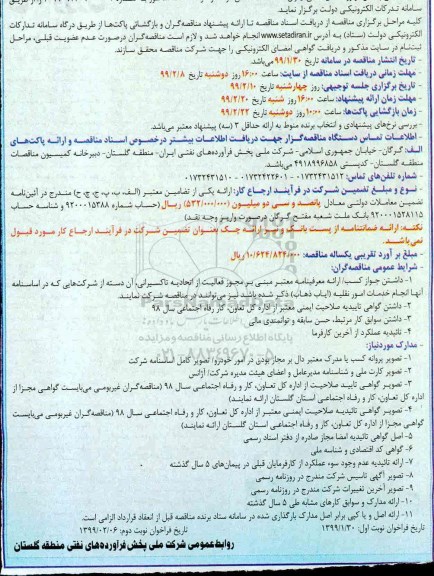 سامانه تدرکات الکترونیکی دولت برگزار نماید.
کلیه مراحل برگزاری مناقصه از دریافت اسناد مناقصه تا ارائه پیشنهاد مناقصه‌گران و بازگشائی پاکت‌ها از طریق درگاه سامانه تدارکات
الکترونیکی دولت (ستاد) به آدرس www.setadiran.ir انجام خواهد شد و لازم است مناقصه‌گران درصورت عدم عضویت قبلی، مراحل
ثبت‌نام در سایت مذکور و دریافت گواهی امضای الکترونیکی را جهت شرکت مناقصه محقق سازند.
- تاریخ انتشار مناقصه در سامانه تاریخ ۹۹/۱/۳۰ می‌باشد
- مهلت زمانی دریافت اسناد مناقصه از سایت: ساعت ۱۶:۰۰ روز دوشنبه تاریخ ۹۹/۲/۸
- تاریخ برگزاری جلسه توجیهی: روز چهارشنبه تاریخ ۹۹/۲/۱۰
- مهلت زمان ارائه پیشنهاد: ساعت ۱۶:۰۰ روز شنبه تاریخ ۹۹/۲/۲۰
- زمان بازگشایی پاکت‌ها: ساعت ۱۰:۰۰ روز دوشنبه تاریخ ۹۹/۲/۲۲
- بررسی نرخ‌های پیشنهادی و انتخاب برنده منوط به ارائه حداقل ۳ (سه) پیشنهاد معتبر می‌باشد.
- اطلاعات تماس دستگاه مناقصه‌گزار جهت دریافت اطلاعات بیشتر درخصوص اسناد مناقصه و ارائه پاکت‌های
الف: گرگان- خیابان جمهوری اسلامی- شرکت ملی پخش فرآورده‌های نفتی ایران- منطقه گلستان- دبیرخانه کمیسیون مناقصات
منطقه گلستان- کدپستی ۴۹۱۸۹۹۶۸۵۸ می‌باشد.
- شماره تلفن‌های تماس: ۰۱۷۳۲۴۳۱۵۱۲ - ۰۱۷۳۲۴۲۲۶۰۱ - ۰۱۷۳۲۴۳۱۵۱۰
- نوع و مبلغ تضمین شرکت در فرآیند ارجاع کار: ارائه یکی از تضامین معتبر (الف، ب، پ، ج، چ، ح) مندرج در آئین‌نامه
تضمین معاملات دولتی معادل پانصد و سی دو میلیون (۵۳۲/۰۰۰/۰۰۰) ریال (حساب شماره ۹۲۰۰۰۱۵۳۸۸ و شناسه حساب
۹۲۰۰۰۱۵۲۸۱۱۵ بانک ملت شعبه مفتح گرگان درصورت واریز وجه نقد)
نکته: ارائه ضمانتنامه از پست بانک و نیز ارائه چک بعنوان تضمین شرکت در فرآیند ارجاع کار مورد قبول
نمی‌باشد.
- مبلغ برآورد تقریبی یکساله مناقصه: ۱۰/۶۲۴/۸۲۴/۰۰۰ ریال
- شرایط عمومی مناقصه‌گران:
۱- داشتن جواز کسب/ ارائه معرفینامه معتبر مبنی بر مجوز فعالیت از اتحادیه تاکسیرانی، آن دسته از شرکت‌هایی که در اساسنامه
آنها انجام خدمات امور نقلیه (ایاب ذهاب) ذکر شده باشد نیز می‌توانند در مناقصه شرکت نمایند.
۲- داشتن گواهی تاییدیه صلاحیت ایمنی معتبر از اداره کل تعاون، کار رفاه اجتماعی سال ۹۸
۳- داشتن سوابق کار مرتبط، حسن سابقه و توانمندی مالی
۴- تائیدیه عملکرد از آخرین کارفرما
- مدارک موردنیاز:
۱- تصویر پروانه کسب یا مدرک معتبر دال بر مجاز بودن در امور خودرو/ تصویر کامل اساسنامه شرکت
۲- تصویر کارت ملی و شناسنامه مدیرعامل و اعضای هیئت مدیره شرکت/ آژانس
۳- تصویر گواهی تایید صلاحیت از اداره کل تعاون، کار و رفاه اجتماعی سال ۹۸ (مناقصه‌گران غیربومی می‌بایست گواهی مجزا از
اداره کل تعاون، کار و رفاه اجتماعی استان گلستان ارائه نمایند)
۴- تصویر گواهی تائیدیه صلاحیت ایمنی معتبر از اداره کل تعاون، کار و رفاه اجتماعی سال ۹۸ (مناقصه‌گران غیربومی می‌بایست
گواهی مجزا از اداره کل تعاون، کار و رفاه اجتماعی استان گلستان ارائه نمایند)
۵- اصل گواهی تائیدیه امضا مجاز صادره از دفتر اسناد رسمی
۶- گواهی کد اقتصادی و شناسه ملی
۷- ارائه تائیدیه عدم وجود سوء عملکرد از کارفرمایان قبلی در پیمان‌های ۵ سال گذشته
۸- تصویر آگهی تاسیس شرکت مندرج در روزنامه رسمی
۹- تصویر آخرین تغییرات شرکت مندرج در روزنامه رسمی
۱۰- ارائه مدارک و سوابق کارهای مشابه طی ۵ سال گذشته
۱۱- ارائه اصل و یا کپی برابر اصل مدارک بارگذاری شده در سامانه ستاد برنده مناقصه قبل از انعقاد قرارداد الزامی است.
تاریخ فراخوان نوبت اول: ۱۳۹۹/۱/۳۰ تاریخ فراخوان نوبت دوم: ۱۳۹۹/۰۲/۰۶
روابط عمومی شرکت ملی پخش فرآورده‌های نفتی منطقه گلستان